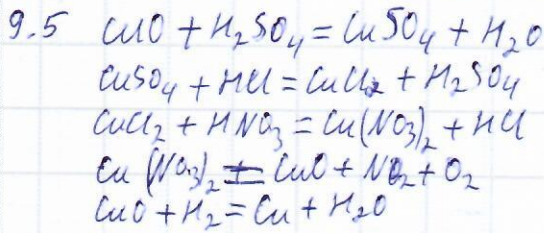 9.5 CuO + H₂SO₄ = CuSO₄ + H₂O
CuSO₄ + HCl = CuCl₂ + H₂SO₄
CuCl₂ + HNO₃ = Cu(NO₃)₂ + HCl
Cu(NO₃)₂ = CuO + NO₂ + O₂
CuO + H₂ = Cu + H₂O